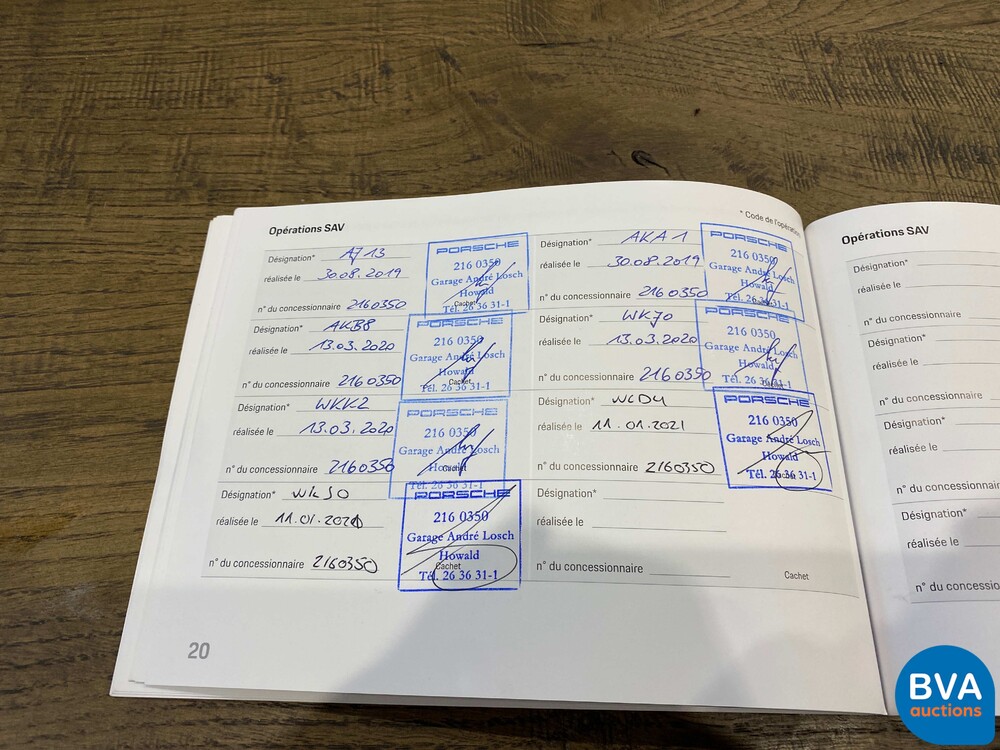 * Code de l'opération
Opérations SAV
Désignation* AJ13
réalisée le 30.08.2019
n° du concessionnaire 2160350
PORSCHE
216 0350
Garage André Losch
Howald
Cachet
Tél. 26 36 31-1
Désignation* AKA1
réalisée le 30.08.2019
n° du concessionnaire 2160350
PORSCHE
216 0350
Garage André Losch
Howald
Tél. 26 36 31-1
Désignation* AKB8
réalisée le 13.03.2020
n° du concessionnaire 2160350
PORSCHE
216 0350
Garage André Losch
Howald
Cachet
Tél. 26 36 31-1
Désignation* WKJ0
réalisée le 13.03.2020
n° du concessionnaire 2160350
PORSCHE
216 0350
Garage André Losch
Howald
Tél. 26 36 31-1
Désignation* WKK2
réalisée le 13.03.2020
n° du concessionnaire 2160350
PORSCHE
216 0350
Garage André Losch
Howald
Cachet
Tél. 26 36 31-1
Désignation* WLD4
réalisée le 11.01.2021
n° du concessionnaire 2160350
PORSCHE
216 0350
Garage André Losch
Howald
Tél. 26 36 31-1
Désignation*
réalisée le 11.01.2021
n° du concessionnaire 2160350
PORSCHE
216 0350
Garage André Losch
Howald
Cachet
Tél. 26 36 31-1
Désignation*
réalisée le
n° du concessionnaire
Cachet
20
Opérations SAV
Désignation*
réalisée le
n° du concessionnaire
Désignation*
réalisée le
n° du concessionnaire
Désignation*
réalisée le
n° du concessionnair
Désignation*
réalisée le
n° du concessio
BVA
auctions